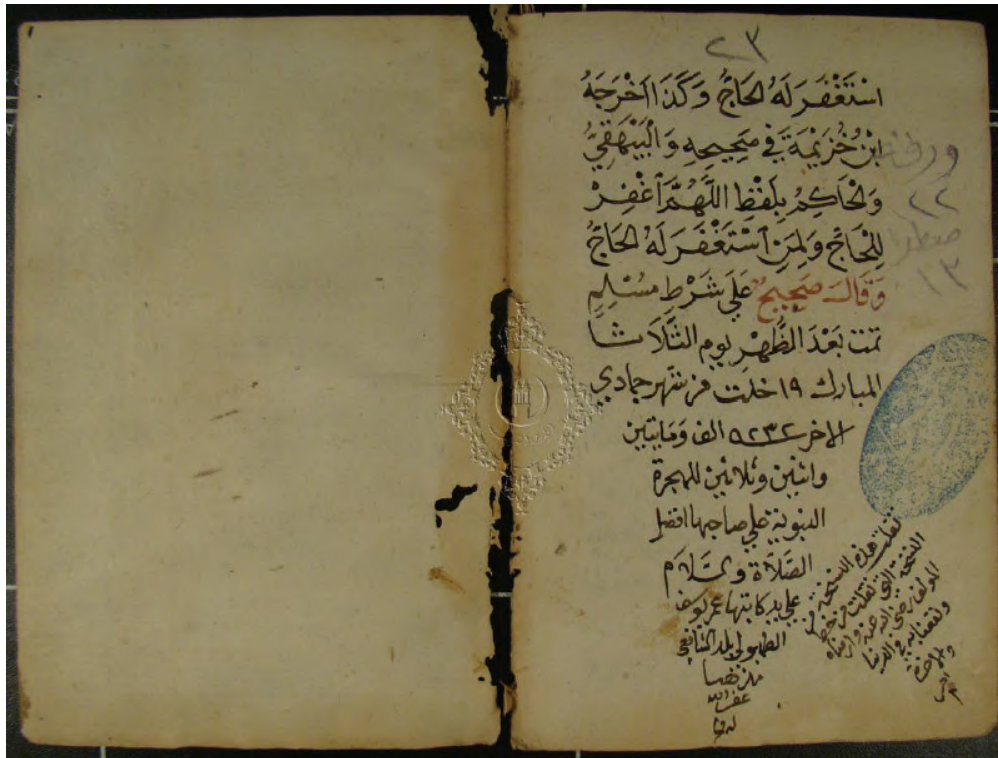 ٢٣
اسْتَغْفَرَ لَهُ الْحَاجُّ وَكَذَا أَخْرَجَهُ
ابْنُ خُزَيْمَةَ فِي صَحِيحِهِ وَالْبَيْهَقِيُّ
وَالْحَاكِمُ بِلَفْظِ اللَّهُمَّ اغْفِرْ
لِلْحَاجِّ وَلِمَنِ اسْتَغْفَرَ لَهُ الْحَاجُّ
وَقَالَ صَحِيحٌ عَلَى شَرْطِ مُسْلِمٍ
تمت بَعْدَ الظُّهْرِ يوم الثَّلَاثَا
المبارك ١٩ خلت من شهر جمادي
الاخر ١٢٣٢ الف ومايتين
واثنين وثلاثين للهجرة
النبوية علي صاحبها افضل
الصَّلَاة والسَّلَام
علي يد كاتبها عمر يوسف
بلد الشافعي
مذهبا
عفا الله
عنه
نقلت هذه النسخة من
النسخة التي نقلت من خط
المولف رضي الله عنه وارضاه
ونفعنا به في الدنيا
والاخرة
ورقة
٢٢
سطر
١٣